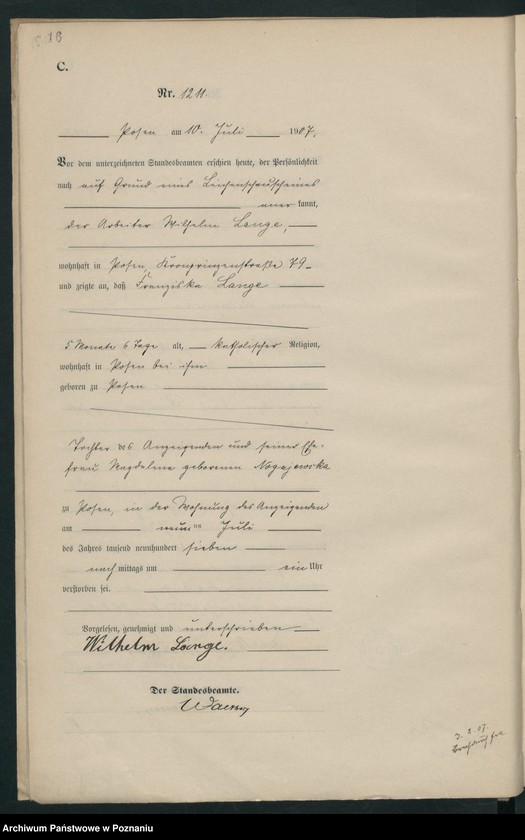 18
C.
Nr. 1211.
Posen am 10. Juli 1907.
Vor dem unterzeichneten Standesbeamten erschien heute, der Persönlichkeit
nach auf Grund eines Leichenschauscheines
aner kannt,
der Arbeiter Wilhelm Lange,
wohnhaft in Posen, Kronprinzenstraße 79
und zeigte an, daß Franziska Lange
5 Monate 6 Tage alt, katholischer Religion,
wohnhaft in Posen bei ihm
geboren zu Posen
Tochter des Anzeigenden und seiner Ehe-
frau Magdalena geborenen
zu Posen, in der Wohnung des Anzeigenden
am neunten Juli
des Jahres tausend neunhundert sieben
nach mittags um ein Uhr
verstorben sei.
Vorgelesen, genehmigt und unterschrieben
Wilhelm Lange.
Der Standesbeamte.
Archiwum Państwowe w Poznaniu